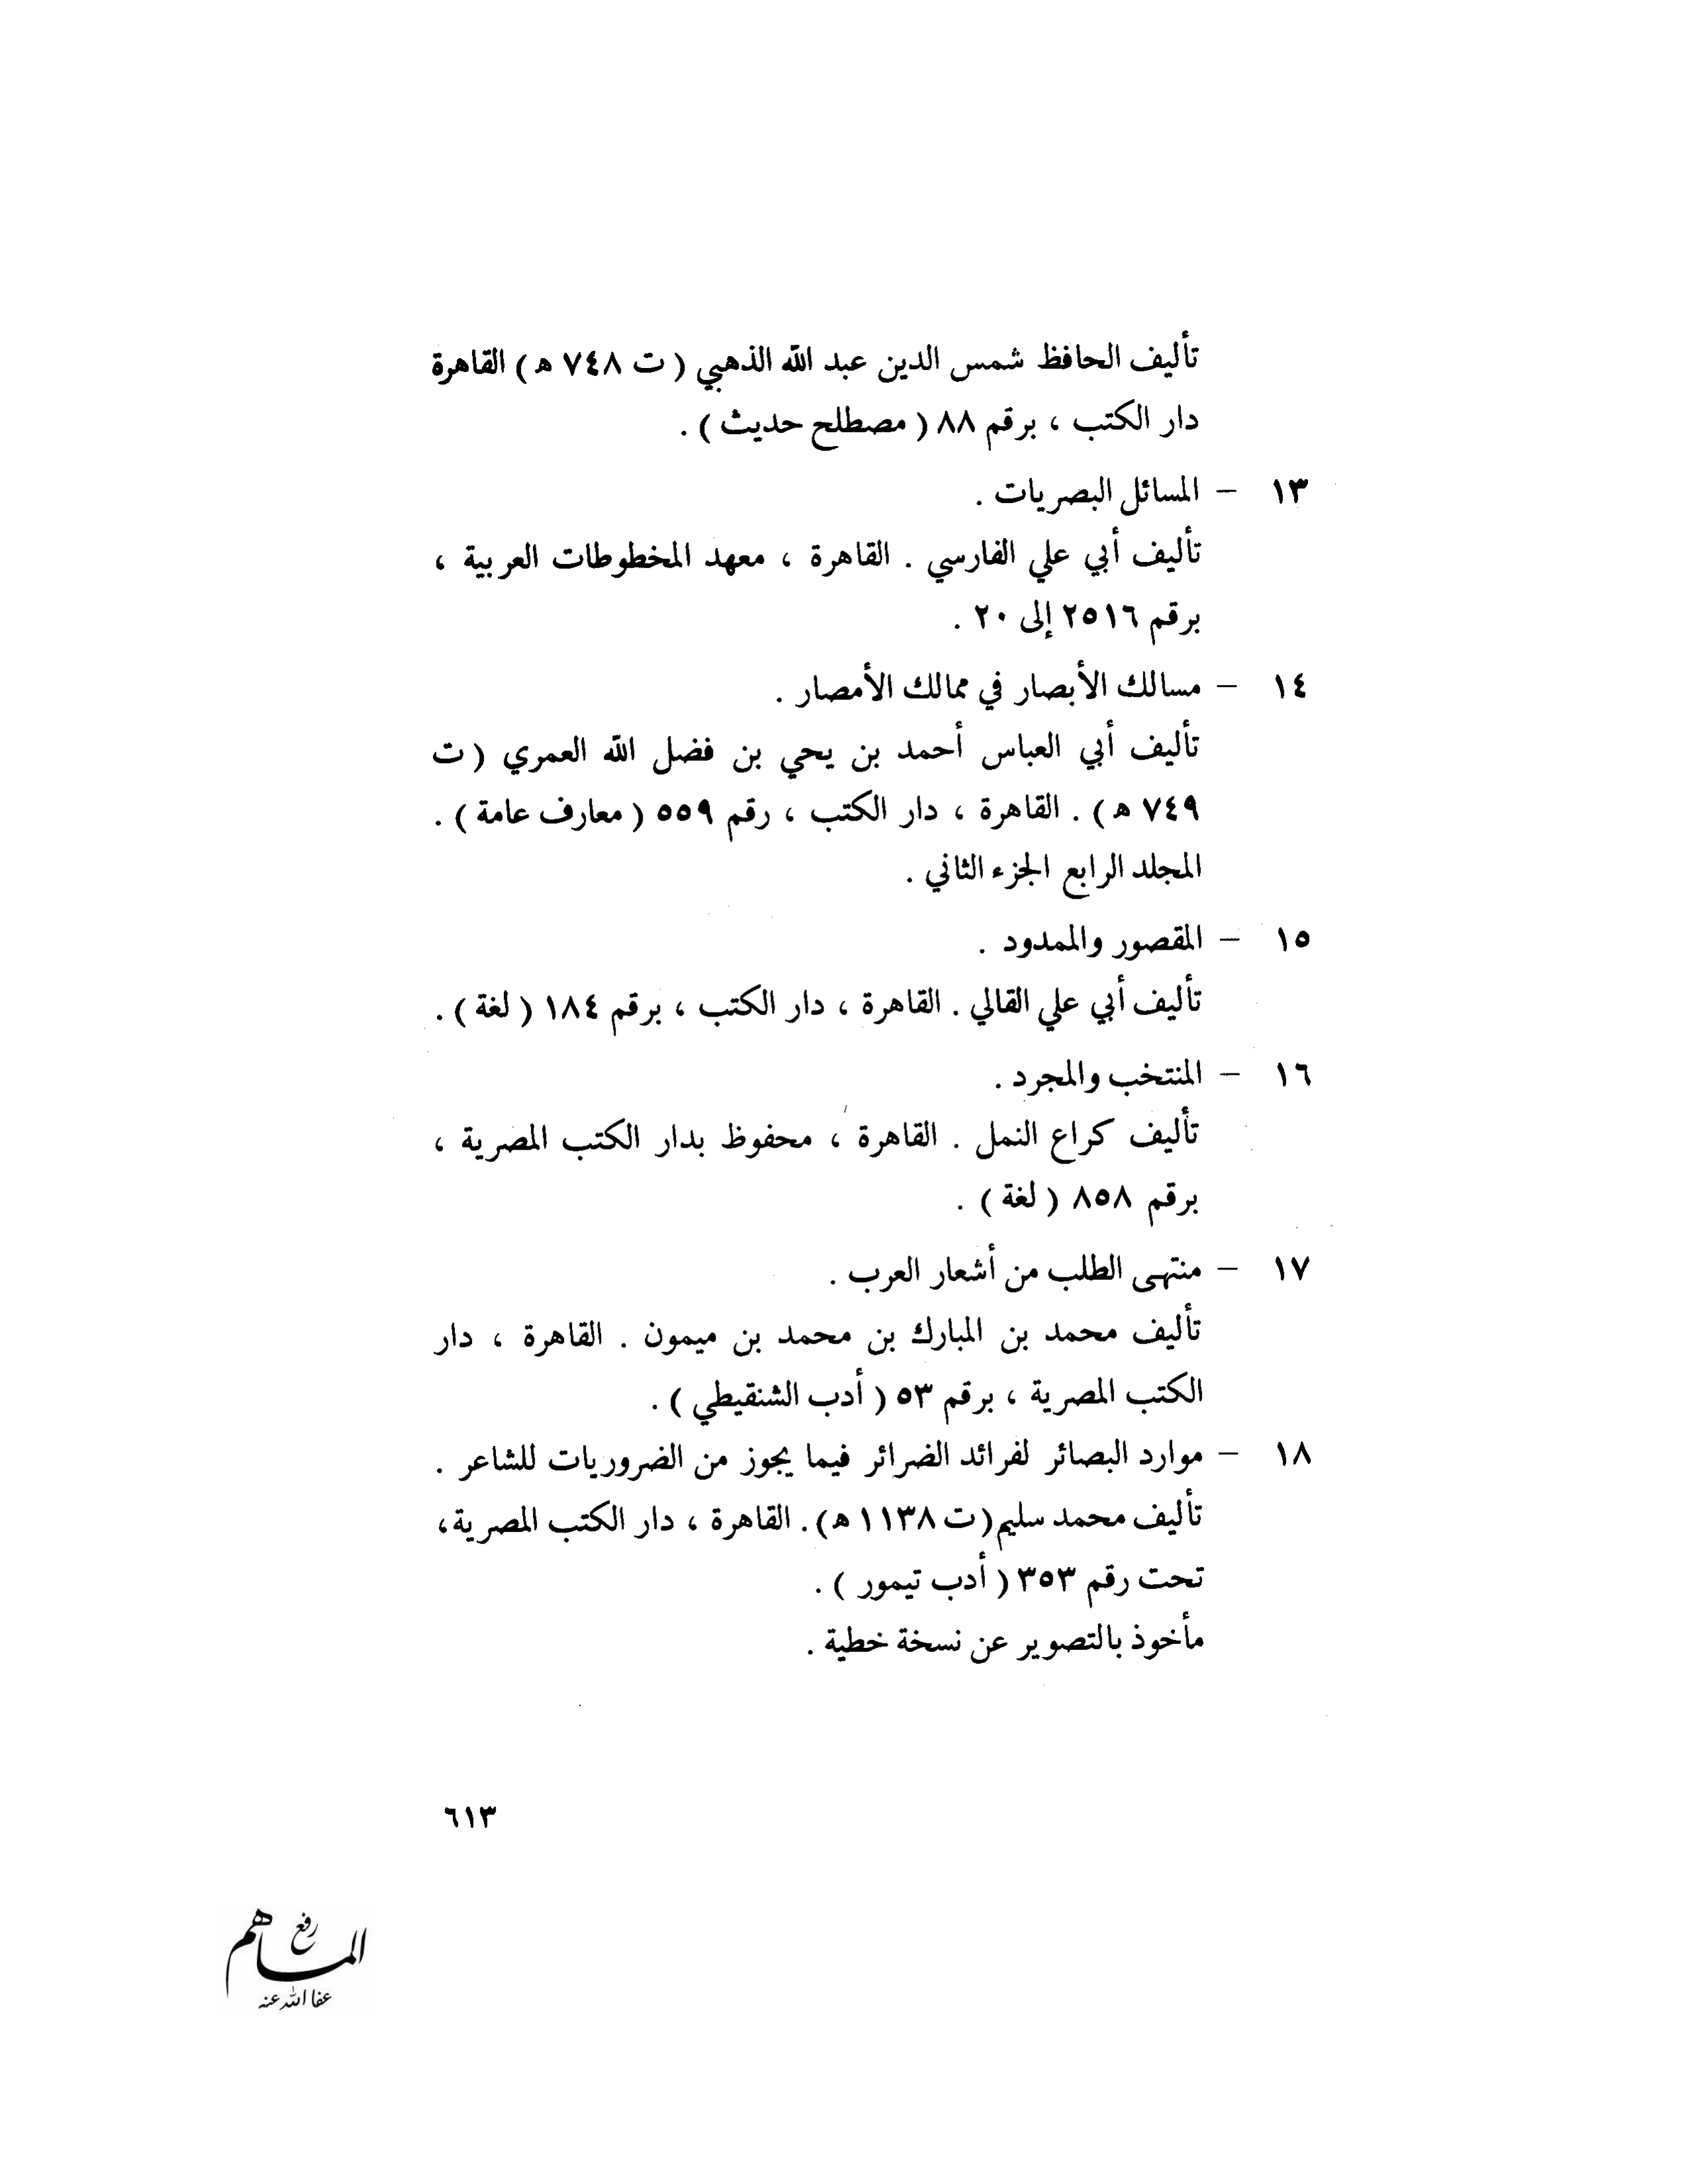 تأليف الحافظ شمس الدين عبد الله الذهبي ( ت ٧٤٨ ه ) القاهرة
دار الكتب ، برقم ٨٨ ( مصطلح حديث ) .
١٣ – المسائل البصريات .
تأليف أبي علي الفارسي . القاهرة ، معهد المخطوطات العربية ،
برقم ٢٥١٦ إلى ٢٠ .
١٤ – مسالك الأبصار في ممالك الأمصار .
تأليف أبي العباس أحمد بن يحي بن فضل الله العمري ( ت
٧٤٩ ه ) . القاهرة ، دار الكتب ، رقم ٥٥٩ ( معارف عامة ) .
المجلد الرابع الجزء الثاني .
١٥ – المقصور والممدود .
تأليف أبي علي القالي . القاهرة ، دار الكتب ، برقم ١٨٤ ( لغة ) .
١٦ – المنتخب والمجرد .
تأليف كراع النمل . القاهرة ، محفوظ بدار الكتب المصرية ،
برقم ٨٥٨ ( لغة ) .
١٧ – منتهى الطلب من أشعار العرب .
تأليف محمد بن المبارك بن محمد بن ميمون . القاهرة ، دار
الكتب المصرية ، برقم ٥٣ ( أدب الشنقيطي ) .
١٨ – موارد البصائر لفرائد الضرائر فيما يجوز من الضروريات للشاعر .
تأليف محمد سليم (ت ١١٣٨ ه) . القاهرة ، دار الكتب المصرية،
تحت رقم ٣٥٣ ( أدب تيمور ) .
مأخوذ بالتصوير عن نسخة خطية .
٦١٣
رفع
عفا الله عنه